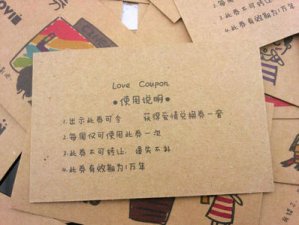 Love Coupon
●使用说明●
1.出示此券可令 获得爱情兑换券一套
2.每周仅可使用此券一次
3.此券不可转让，遗失不补
4.此券有效期为1万年
4.此券有效期为1万年